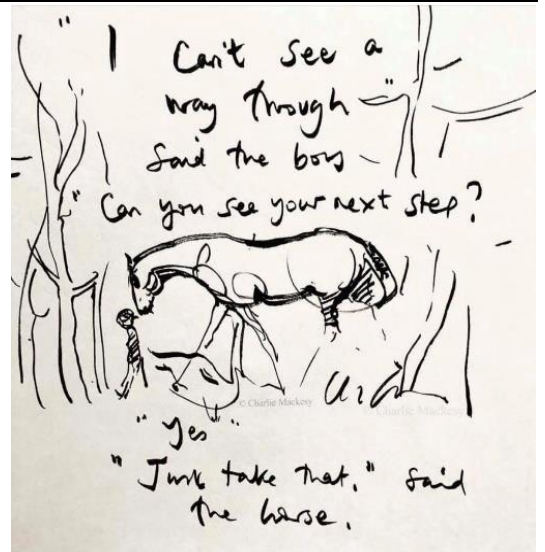 "I Can't see a
way through"
said the boy
"Can you see your next step?
© Charlie Mackesy
© Charlie Mackesy
"Yes"
"Just take that," said
the horse.